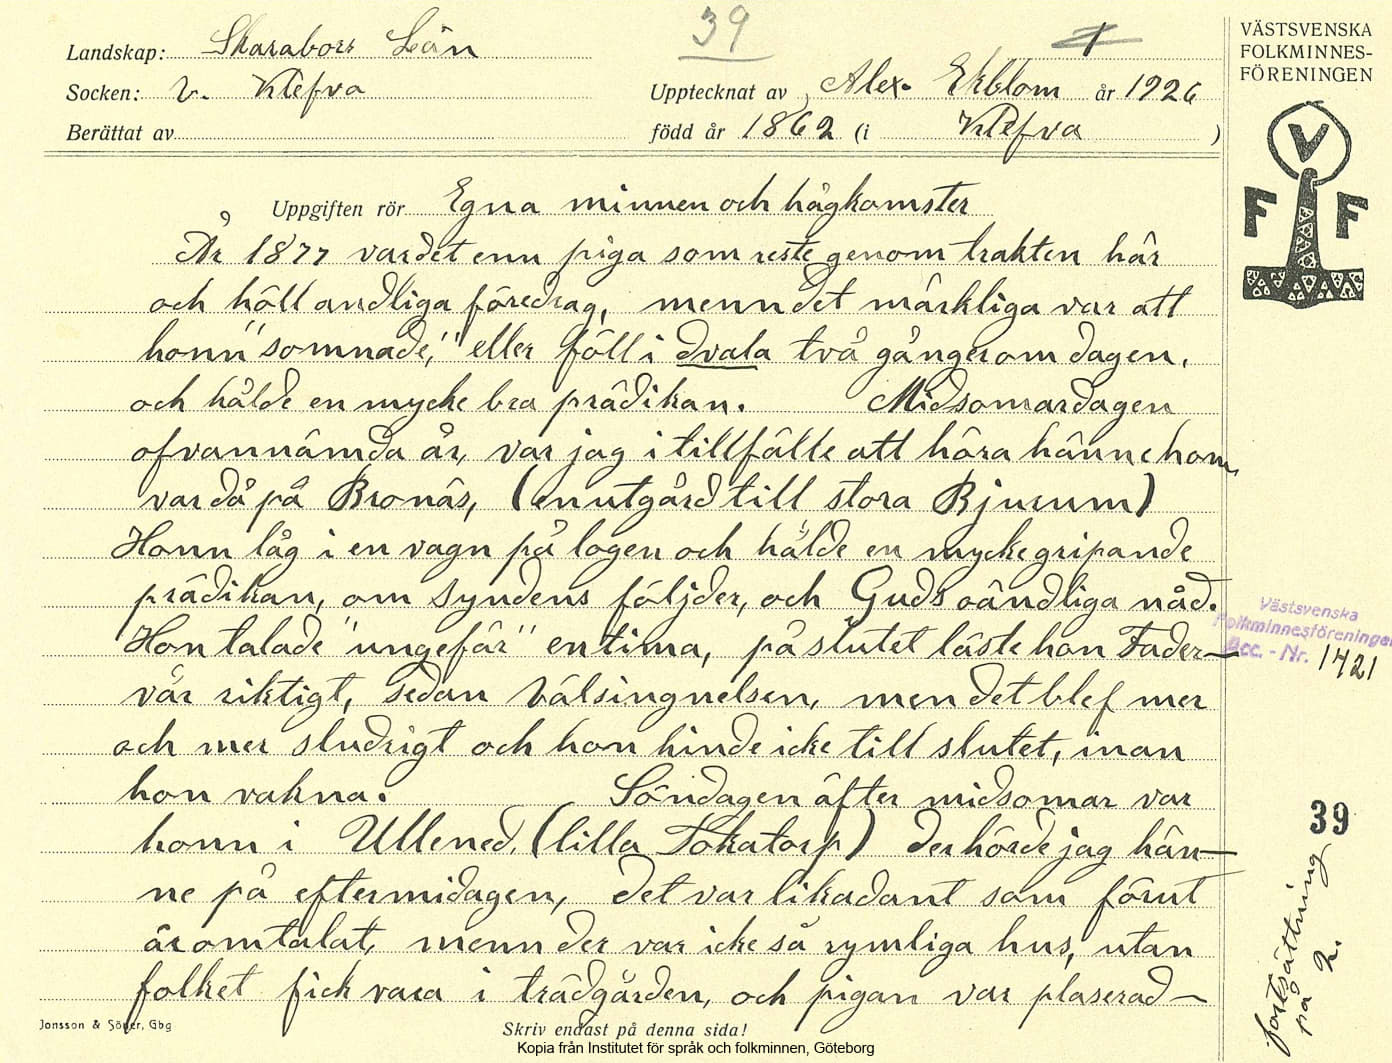 39
Landskap: Skarabors Län
Socken: V. Klefva
Upptecknat av Alex. Ekblom år 1926
Berättat av
född år 1862 (i Klefva )
VÄSTSVENSKA
FOLKMINNES-
FÖRENINGEN
V
F F
Uppgiften rör Egna minnen och hågkomster
År 1877 var det enn piga som reste genom trakten här
och höll andliga föredrag, menn det märkliga var att
honn "somnade," eller föll i dvala två gånger om dagen,
och hälde en mycke bra prädikan. Midsomardagen
ofvannämda år, var jag i tillfälle att höra hänne hon,
var då på Bronäs, (en utgård till stora Bjurum)
Honn låg i en vagn på logen och hälde en mycke gripande
prädikan, om syndens följder, och Guds oändliga nåd.
Hon talade "ungefär" en tima, på slutet läste hon Fader-
vår riktigt, sedan Välsingnelsen, men det blef mer
och mer sludrigt och hon hinde icke till slutet, inan
hon vakna. Söndagen äfter midsomar var
honn i Ullened, (lilla Tokatorp) der hörde jag hän-
ne på eftermidagen, det var likadant som förut
är omtalat, menn der var icke så rymliga hus, utan
folket fick vara i trädgården, och pigan var plaserad-
Västsvenska
Folkminnesföreningen
Acc. - Nr. 1421
39
fortsättning
på 2.
Jonsson & Söner, Gbg
Skriv endast på denna sida!
Kopia från Institutet för språk och folkminnen, Göteborg